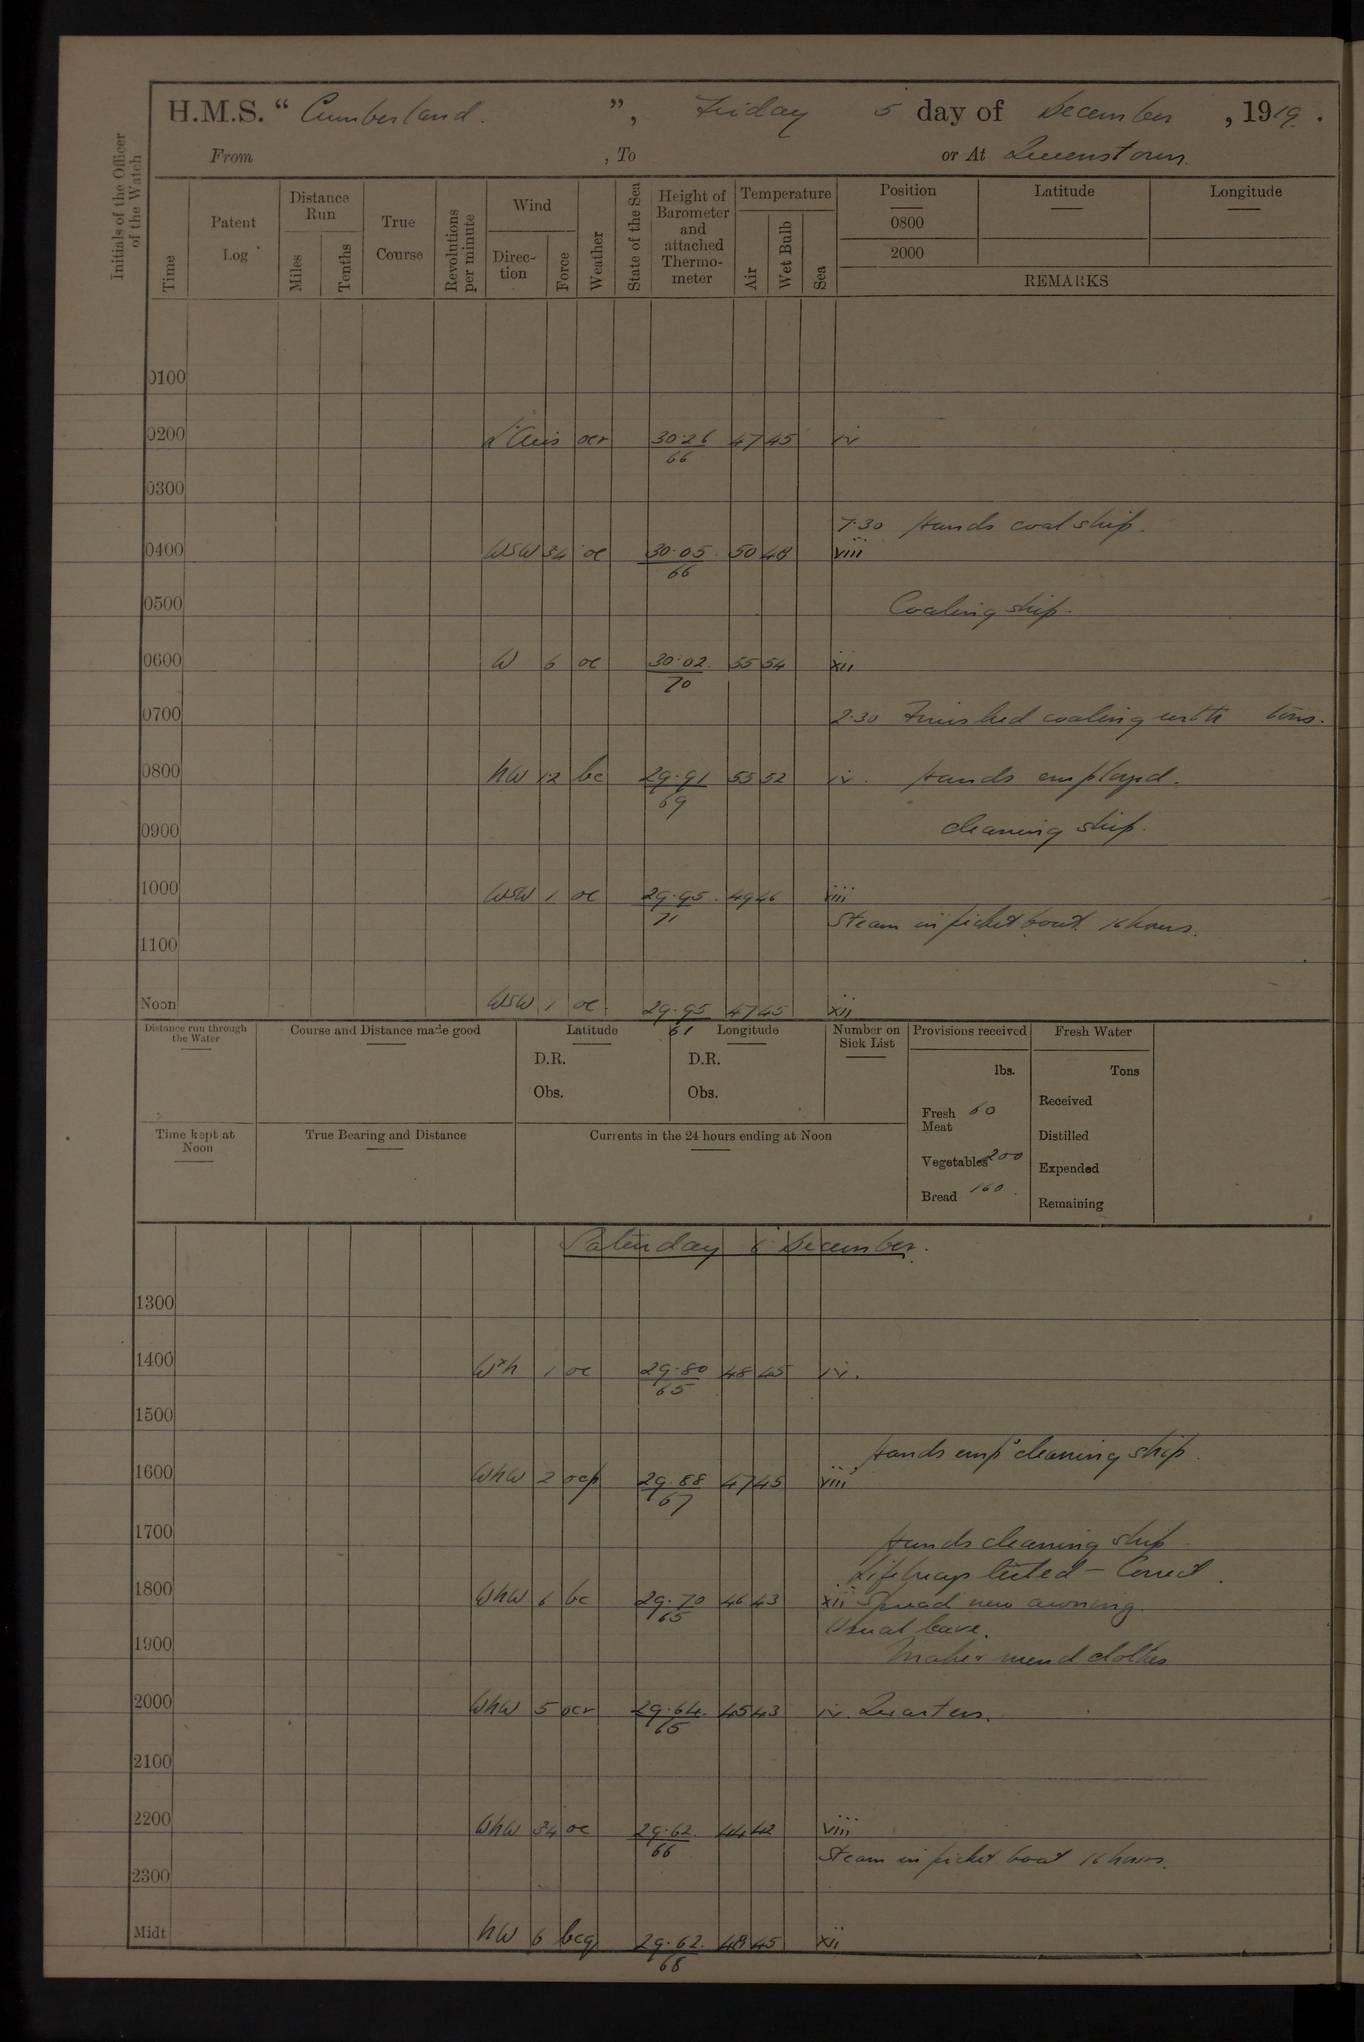 H.M.S. “ Cumberland. ”, Friday 5 day of December, 1919.
From , To or At Queenstown.
Initials of the Officer of the Watch
Time
Patent Log
Distance Run
Miles
Tenths
True Course
Revolutions per minute
Wind
Direction
Force
Weather
State of the Sea
Height of Barometer and attached Thermometer
Temperature
Air
Wet Bulb
Sea
Position Latitude Longitude
0800
2000
REMARKS
0100
0200 ocr 30.26 47 45 iv
66
0300
7.30 Hands coal ship.
0400 WSW 34 oc 30.05 50 48 viii
66
0500 Coaling ship.
0600 W 6 oc 30.02 55 54 xii
70
0700 2.30 Finished coaling with tons.
0800 NW 12 bc 29.91 55 52 iv. Hands employed.
69
0900 cleaning ship.
1000 WSW 1 oc 29.95 49 46 viii
71
Steam in picket boat 16 hours.
1100
Noon WSW 1 oc. 29.95 47 45 xii
61
Distance run through the Water
Course and Distance made good
Latitude
D.R.
Obs.
Longitude
D.R.
Obs.
Number on Sick List
Provisions received
lbs.
Fresh Meat 60
Vegetables 200
Bread 160
Fresh Water
Tons
Received
Distilled
Expended
Remaining
Time kept at Noon
True Bearing and Distance
Currents in the 24 hours ending at Noon
Saturday 6 December.
1300
1400 WxN 1 oc 29.80 48 45 iv.
65
1500
Hands empd cleaning ship.
1600 WNW 2 ocp 29.88 47 45 viii
67
1700 Hands cleaning ship
Lifebuoys tested – Correct.
1800 WNW 6 bc 29.70 46 43 xii Spread new awning.
65
Usual leave.
1900 Make & mend clothes
2000 WNW 5 ocr 29.64 45 43 iv. Quarters.
65
2100
2200 WNW 34 oc 29.62 44 42 viii
66
Steam in picket boat 16 hours.
2300
Midt NW 6 bcq 29.62 48 45 xii
68